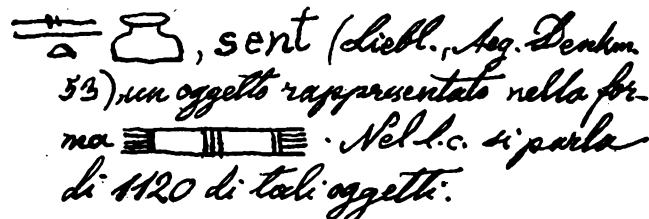 , sent (Liebl., Aeg. Denkm.
53), un oggetto rappresentato nella for-
ma . Nel l.c. si parla
di 1120 di tali oggetti.